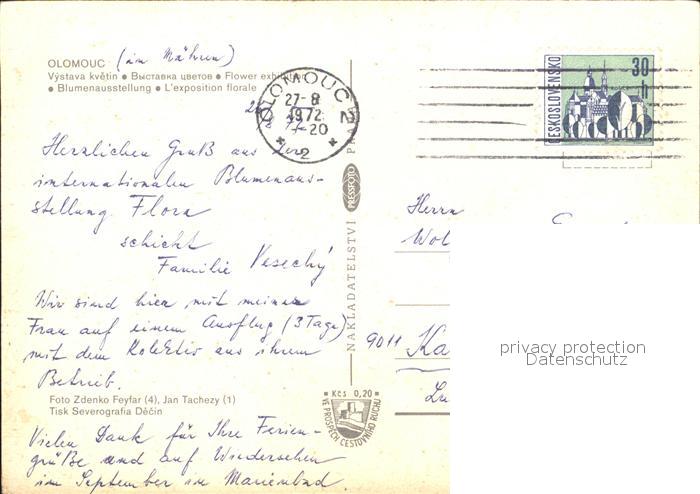 OLOMOUC (in Mähren)
Výstava květin • Выставка цветов • Flower exhibition
• Blumenausstellung • L'exposition florale
OLOMOUC 2
27-8
1972
-20
2
ČESKOSLOVENSKO
30 h
Herzlichen Gruß aus der
internationalen Blumenaus-
stellung Flora
schickt
Familie Vesechý
Wir sind hier mit meiner
Frau auf einem Ausflug (3 Tage)
mit dem Kolektiv aus ihrem
Betrieb.
Foto Zdenko Feyfar (4), Jan Tachezy (1)
Tisk Severografia Děčín
Vielen Dank für Ihre Ferien-
grüße und auf Wiedersehen
im September in Marienbad.
NAKLADATELSTVÍ PRESSFOTO
Kčs 0,20
VE PROSPĚCH CESTOVNÍHO RUCHU
Herrn
Wol
9011 Ka
privacy protection
Datenschutz